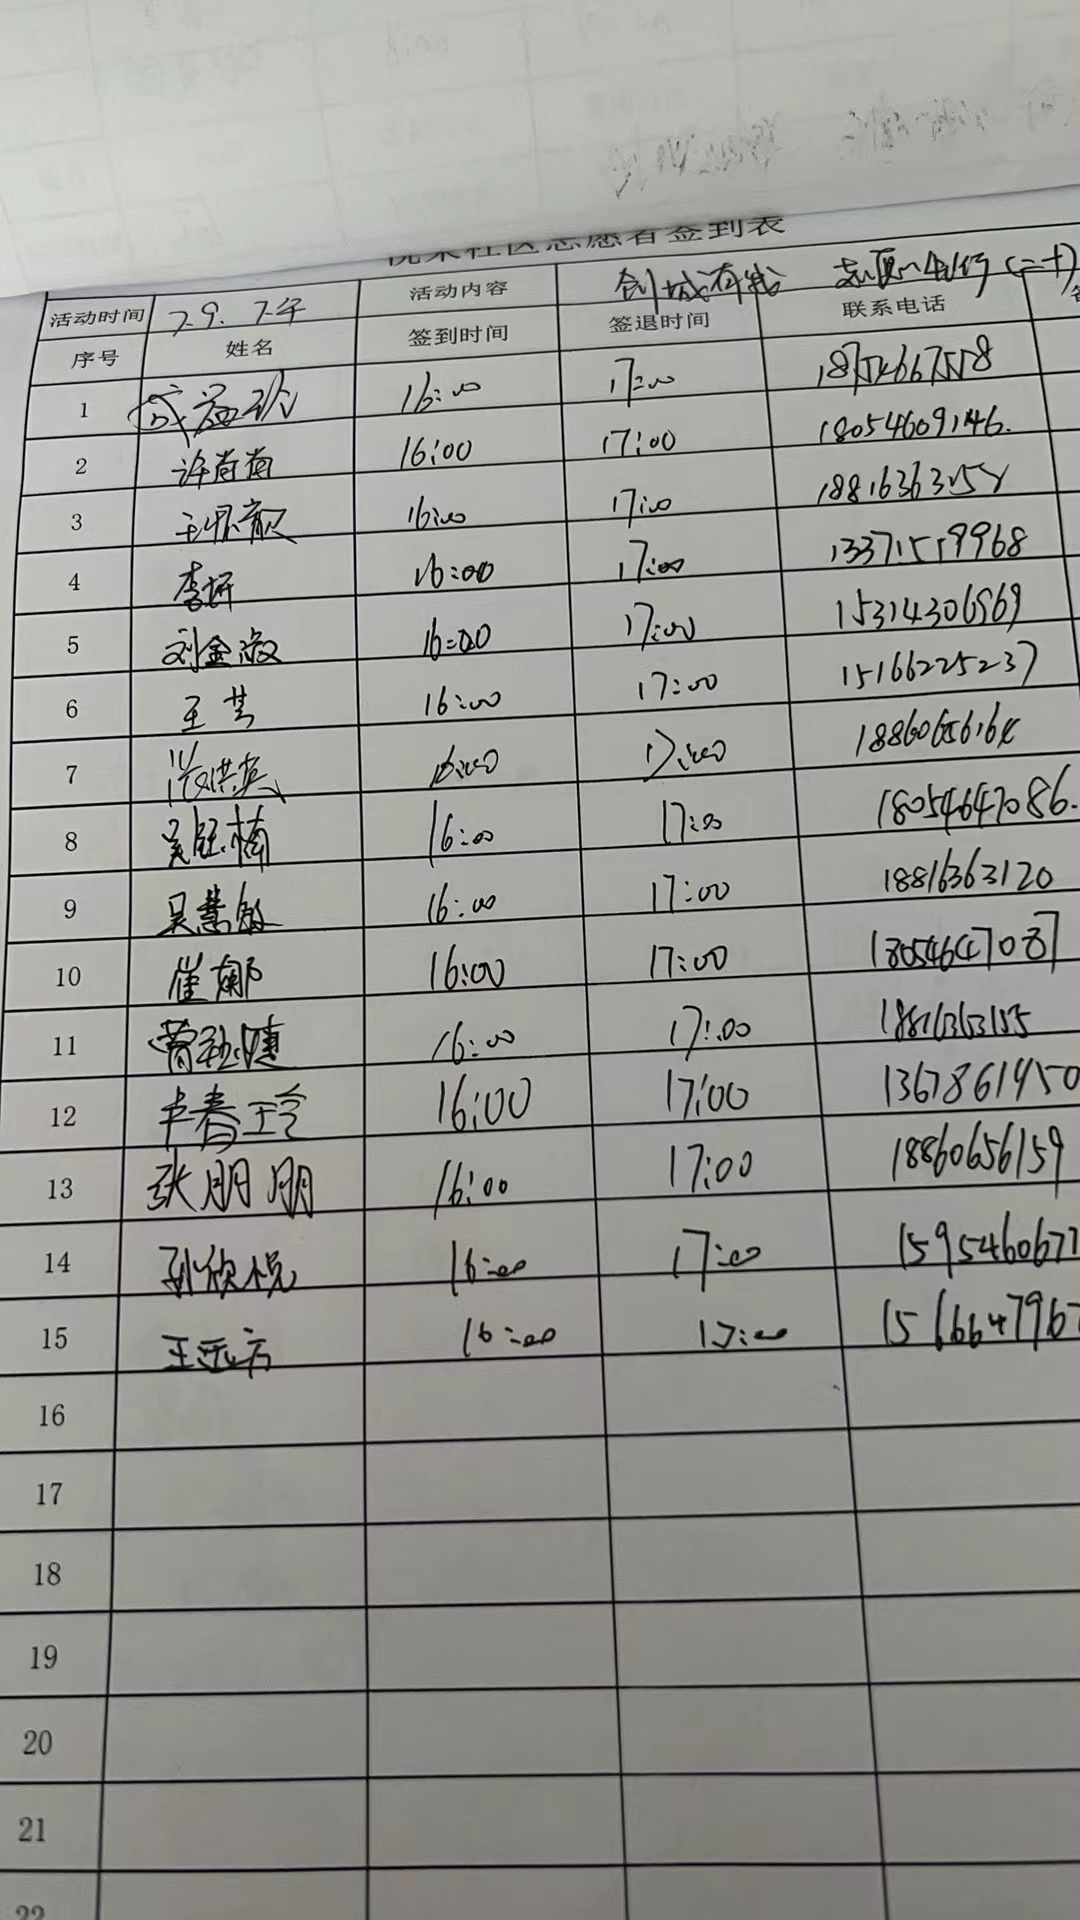 社区志愿者签到表
活动时间 7.9.下午 活动内容 创城有我 志愿同行(二十)
序号 姓名 签到时间 签退时间 联系电话
1 16:00 17:00 18754667558
2 许尚尚 16:00 17:00 18054609146.
3 16:00 17:00
4 李妍 16:00 17:00 13371519968
5 刘金淑 16:00 17:00 15314306969
6 王芸 16:00 17:00 15166225237
7 16:00 17:00
8 吴钰楠 16:00 17:00 18054647086.
9 吴慧敏 16:00 17:00 18816363120
10 崔娜 16:00 17:00 18054647087
11 16:00 17:00 18816363155
12 16:00 17:00 13678619450
13 张朋朋 16:00 17:00 18860656159
14 孙欣悦 16:00 17:00 1595460677
15 王远方 16:00 17:00 1566647967
16
17
18
19
20
21
22